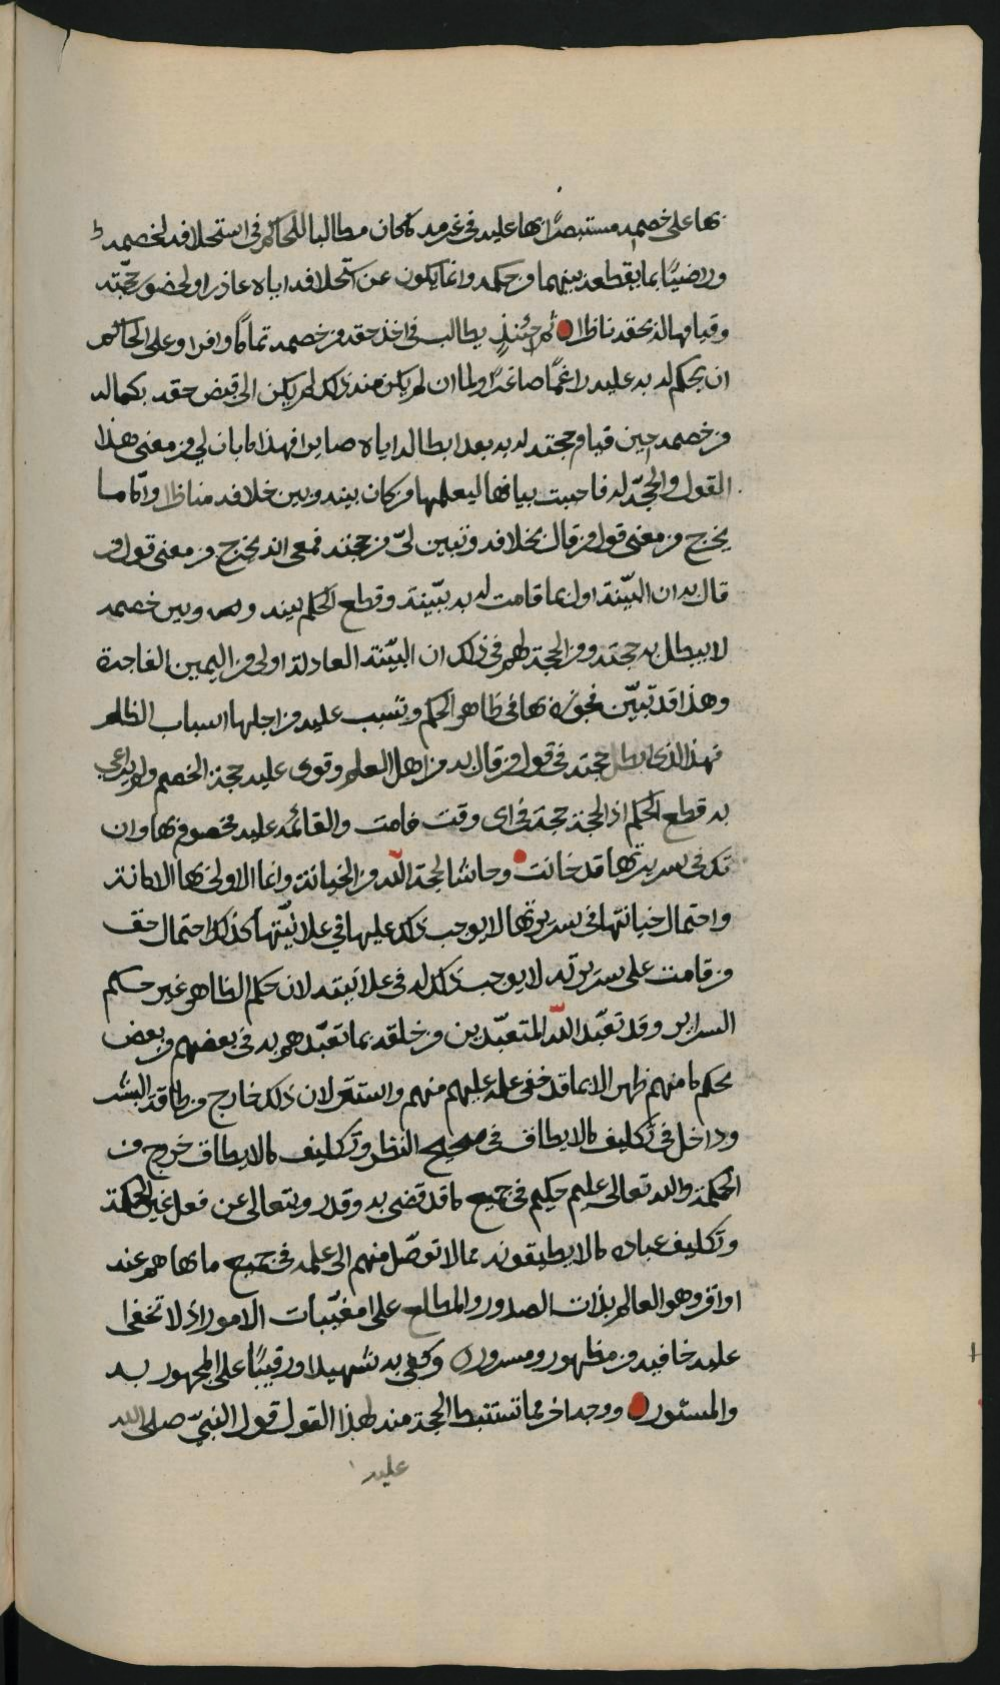 بها على خصمه مستبصرًا بها عليه في غرمه كما كان مطالبا للحاكم في استحلافه لخصمه
وراضيًا بما يقطعه بينهما من حكمه وانما يكون عن استحلافه اياه عاذرا ولحضور حجّته
وقيامها له بحقه ناظرا ثم حينئذٍ يطالب في اخذ حقه من خصمه تمامًا وافرا وعلى الحاكم
ان يحكم له به عليه راغمًا صاغرًا ولما ان لم يكن منه ذلك لم يكن الى قبض حقه بكماله
من خصمه حين قيام حجته له به بعد ابطاله اياه صايرا فهذا ما بان لي من معنى هذا
القول والحجّة له فاحببت بيانها ليعلمها من كان بينه وبين خلافه مناظرا وامّا ما
يخرج من معنى قول من قال بخلافه وتبين لي من حجته فمعي انه يخرج من معنى قول من
قال به ان البيّنة اولى بما قامت له به بيّنة وقطع الحكم بينه وبين خصمه
لا يبطل به حجته ومن الحجة لهم في ذلك ان البيّنة العادلة اولى من اليمين الفاجرة
وهذا قد تبيّن فجوره بها في ظاهر الحكم وتسبب عليه من اجلها اسباب الظلم
فهذا الذي ابطل حجته في قول من قال به من اهل العلم وقوى عليه حجة الخصم ولم يراعي
به قطع الحكم اذ الحجة حجة في اي وقت قامت والقائمة عليه مخصوم بها وان
تك في سريرتها قد خانت وحاشا لحجة الله من الخيانة وانما الاولى بها الامانة
واحتمال خيانتها في سريرتها لا يوجب ذلك عليها في علانيّتها كذلك احتمال حق
من قامت على سريرته لا يوجب ذلك له في علانيته لان حكم الظاهر غير حكم
السراير وقد تعبّد الله المتعبّدين من خلقه بما تعبّدهم به في بعضهم وبعض
بحكم ما منهم ظهر لا بما قد خفي علمه عليهم منهم واستتر لان ذلك خارج من طاقة البشر
وداخل في تكليف ما لا يطاق في صحيح النظر وتكليف ما لا يطاق خروج من
الحكمة والله تعالى عليم حكيم في جميع ما قد قضى به وقدر ويتعالى عن فعل غير الحكمة
وتكليف عباده ما لا يطيقونه مما لا توصّل منهم الى علمه في جميع ما بها هم عنه
او امر وهو العالم بذات الصدور والمطالع على مغيّبات الامور اذ لا تخفى
عليه خافيه من مظهور ومسرور وكفى به شهيدا ورقيبًا على المجهور به
والمستور ووجه اخر مما تستنبط الحجة منه لهذا القول قول النبيّ صلى الله
عليه